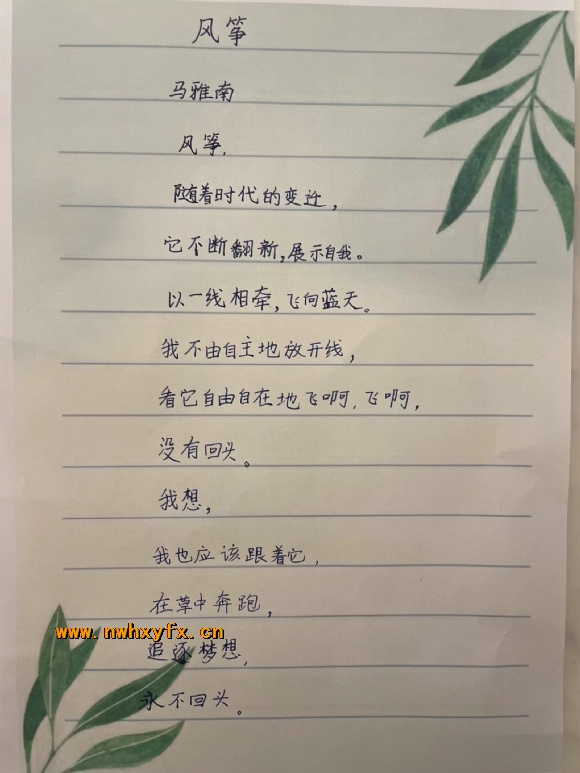 风筝
马雅南
风筝,
随着时代的变迁,
它不断翻新,展示自我。
以一线相牵,飞向蓝天。
我不由自主地放开线,
看它自由自在地飞啊,飞啊,
没有回头。
我想,
我也应该跟着它,
在草中奔跑,
www.nwhxyfx.cn
追逐梦想,
永不回头。